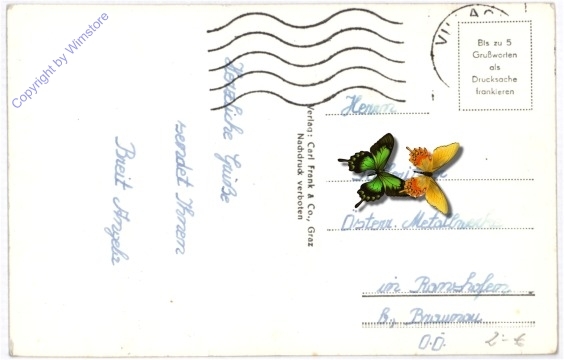 Copyright by Wimstore
VILLACH
Bis zu 5
Grußworten
als
Drucksache
frankieren
Herzliche Grüße
sendet Ihnen
Breit Angela
Verlag: Carl Frank & Co., Graz
Nachdruck verboten
Herrn
Österr. Metallwerke
in Ranshofen
b. Braunau
O.Ö.
2.- €